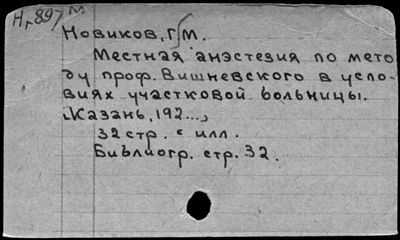 Н, 897
Новиков, Г. М.
Местная анэстезия по мето
ду проф. Вишневского в усло-
виях участковой больницы.
[Казань, 192...,
32 стр. с илл.
Библиогр. стр. 32.